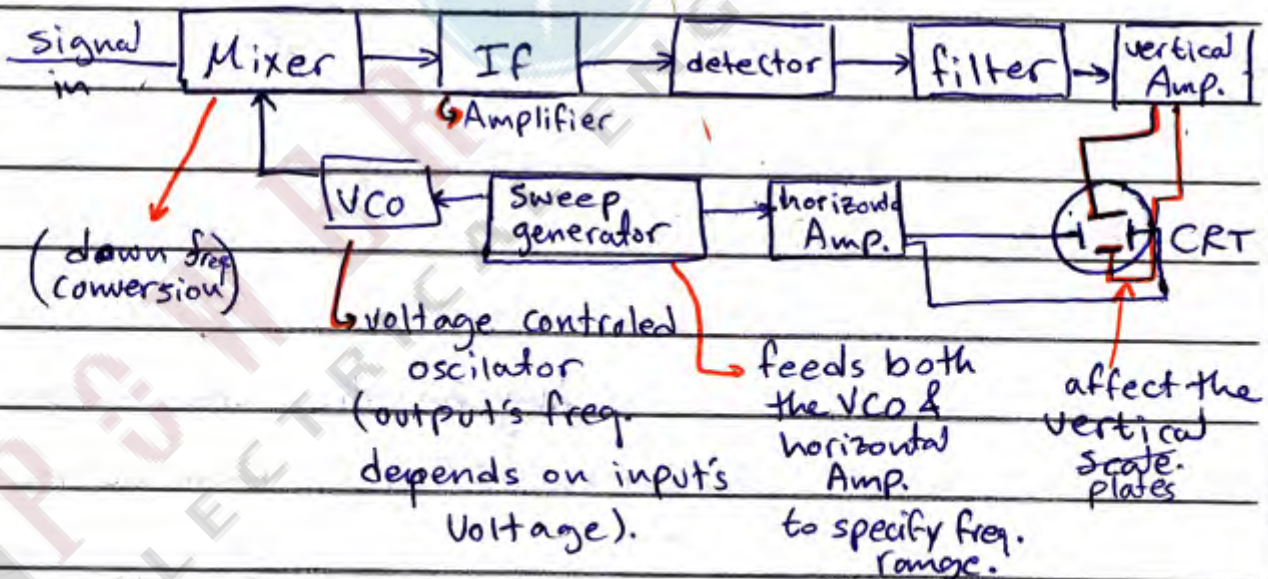 signal
in
Mixer
If
detector
filter
vertical
Amp.
Amplifier
VCO
Sweep
generator
horizontal
Amp.
CRT
(down freq
conversion)
voltage controled
oscilator
(output's freq.
depends on input's
Voltage).
feeds both
the VCO &
horizontal
Amp.
to specify freq.
range.
affect the
vertical
scale.
plates